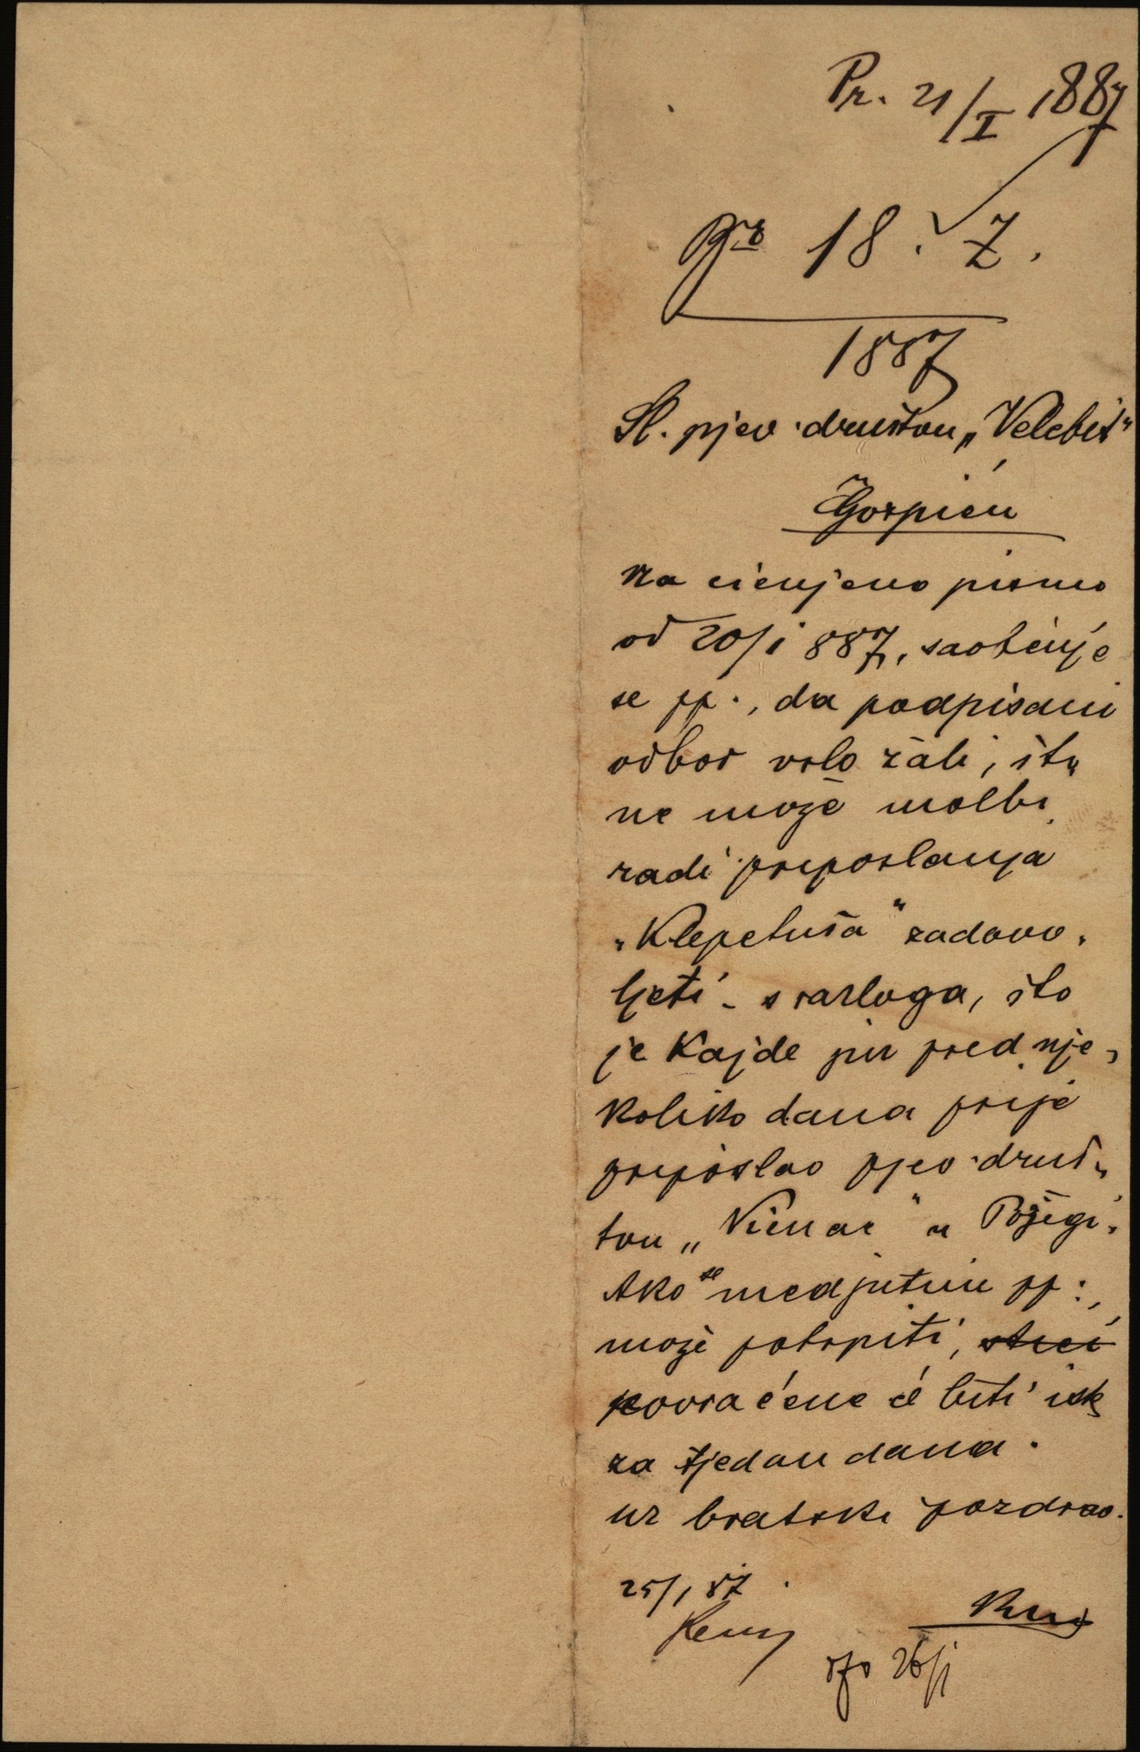 Pr. 21/I 1887
Br 18. Z.
1887
Sl. pjev. društvu „Velebit"
Gospiću
Na cienjeno pismo
od 20/1 887, saobćuje
se pp., da podpisani
odbor vrlo žali, što
ne može molbi
radi priposlanja
„Klepetuša" zadovo-
ljeti - s razloga, što
je Kajde jur pred nje-
koliko dana prije
pripóslao pjev. druš-
tvu „Vienac" u Požegi.
Ako se medjutim pp:,
može potrpiti,
povraćene će biti isk
za tjedan dana.
uz bratski pozdrav.
25/1 87.
26/1